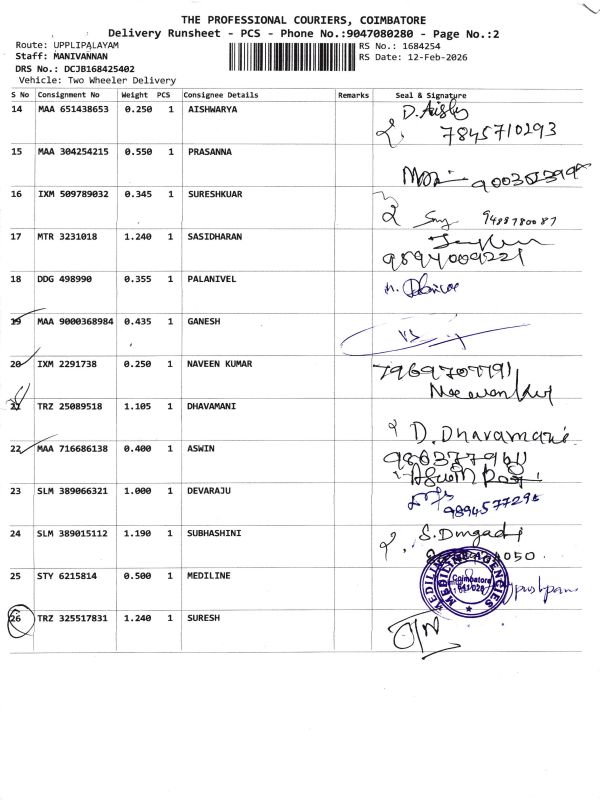 THE PROFESSIONAL COURIERS, COIMBATORE
Delivery Runsheet - PCS - Phone No.:9047080280 - Page No.:2
Route: UPPLIPALAYAM RS No.: 1684254
Staff: MANIVANNAN RS Date: 12-Feb-2026
DRS No.: DCJB168425402
Vehicle: Two Wheeler Delivery
S No Consignment No Weight PCS Consignee Details Remarks Seal & Signature
14 MAA 651438653 0.250 1 AISHWARYA D. Aishu
7845710293
15 MAA 304254215 0.550 1 PRASANNA
16 IXM 509789032 0.345 1 SURESHKUAR
9488780087
17 MTR 3231018 1.240 1 SASIDHARAN
9894009221
18 DDG 498990 0.355 1 PALANIVEL
19 MAA 9000368984 0.435 1 GANESH
20 IXM 2291738 0.250 1 NAVEEN KUMAR
21 TRZ 25089518 1.105 1 DHAVAMANI
D. Dhavamani
22 MAA 716686138 0.400 1 ASWIN
23 SLM 389066321 1.000 1 DEVARAJU
24 SLM 389015112 1.190 1 SUBHASHINI
25 STY 6215814 0.500 1 MEDILINE MEDILINE AGENCIES
Coimbatore
26 TRZ 325517831 1.240 1 SURESH